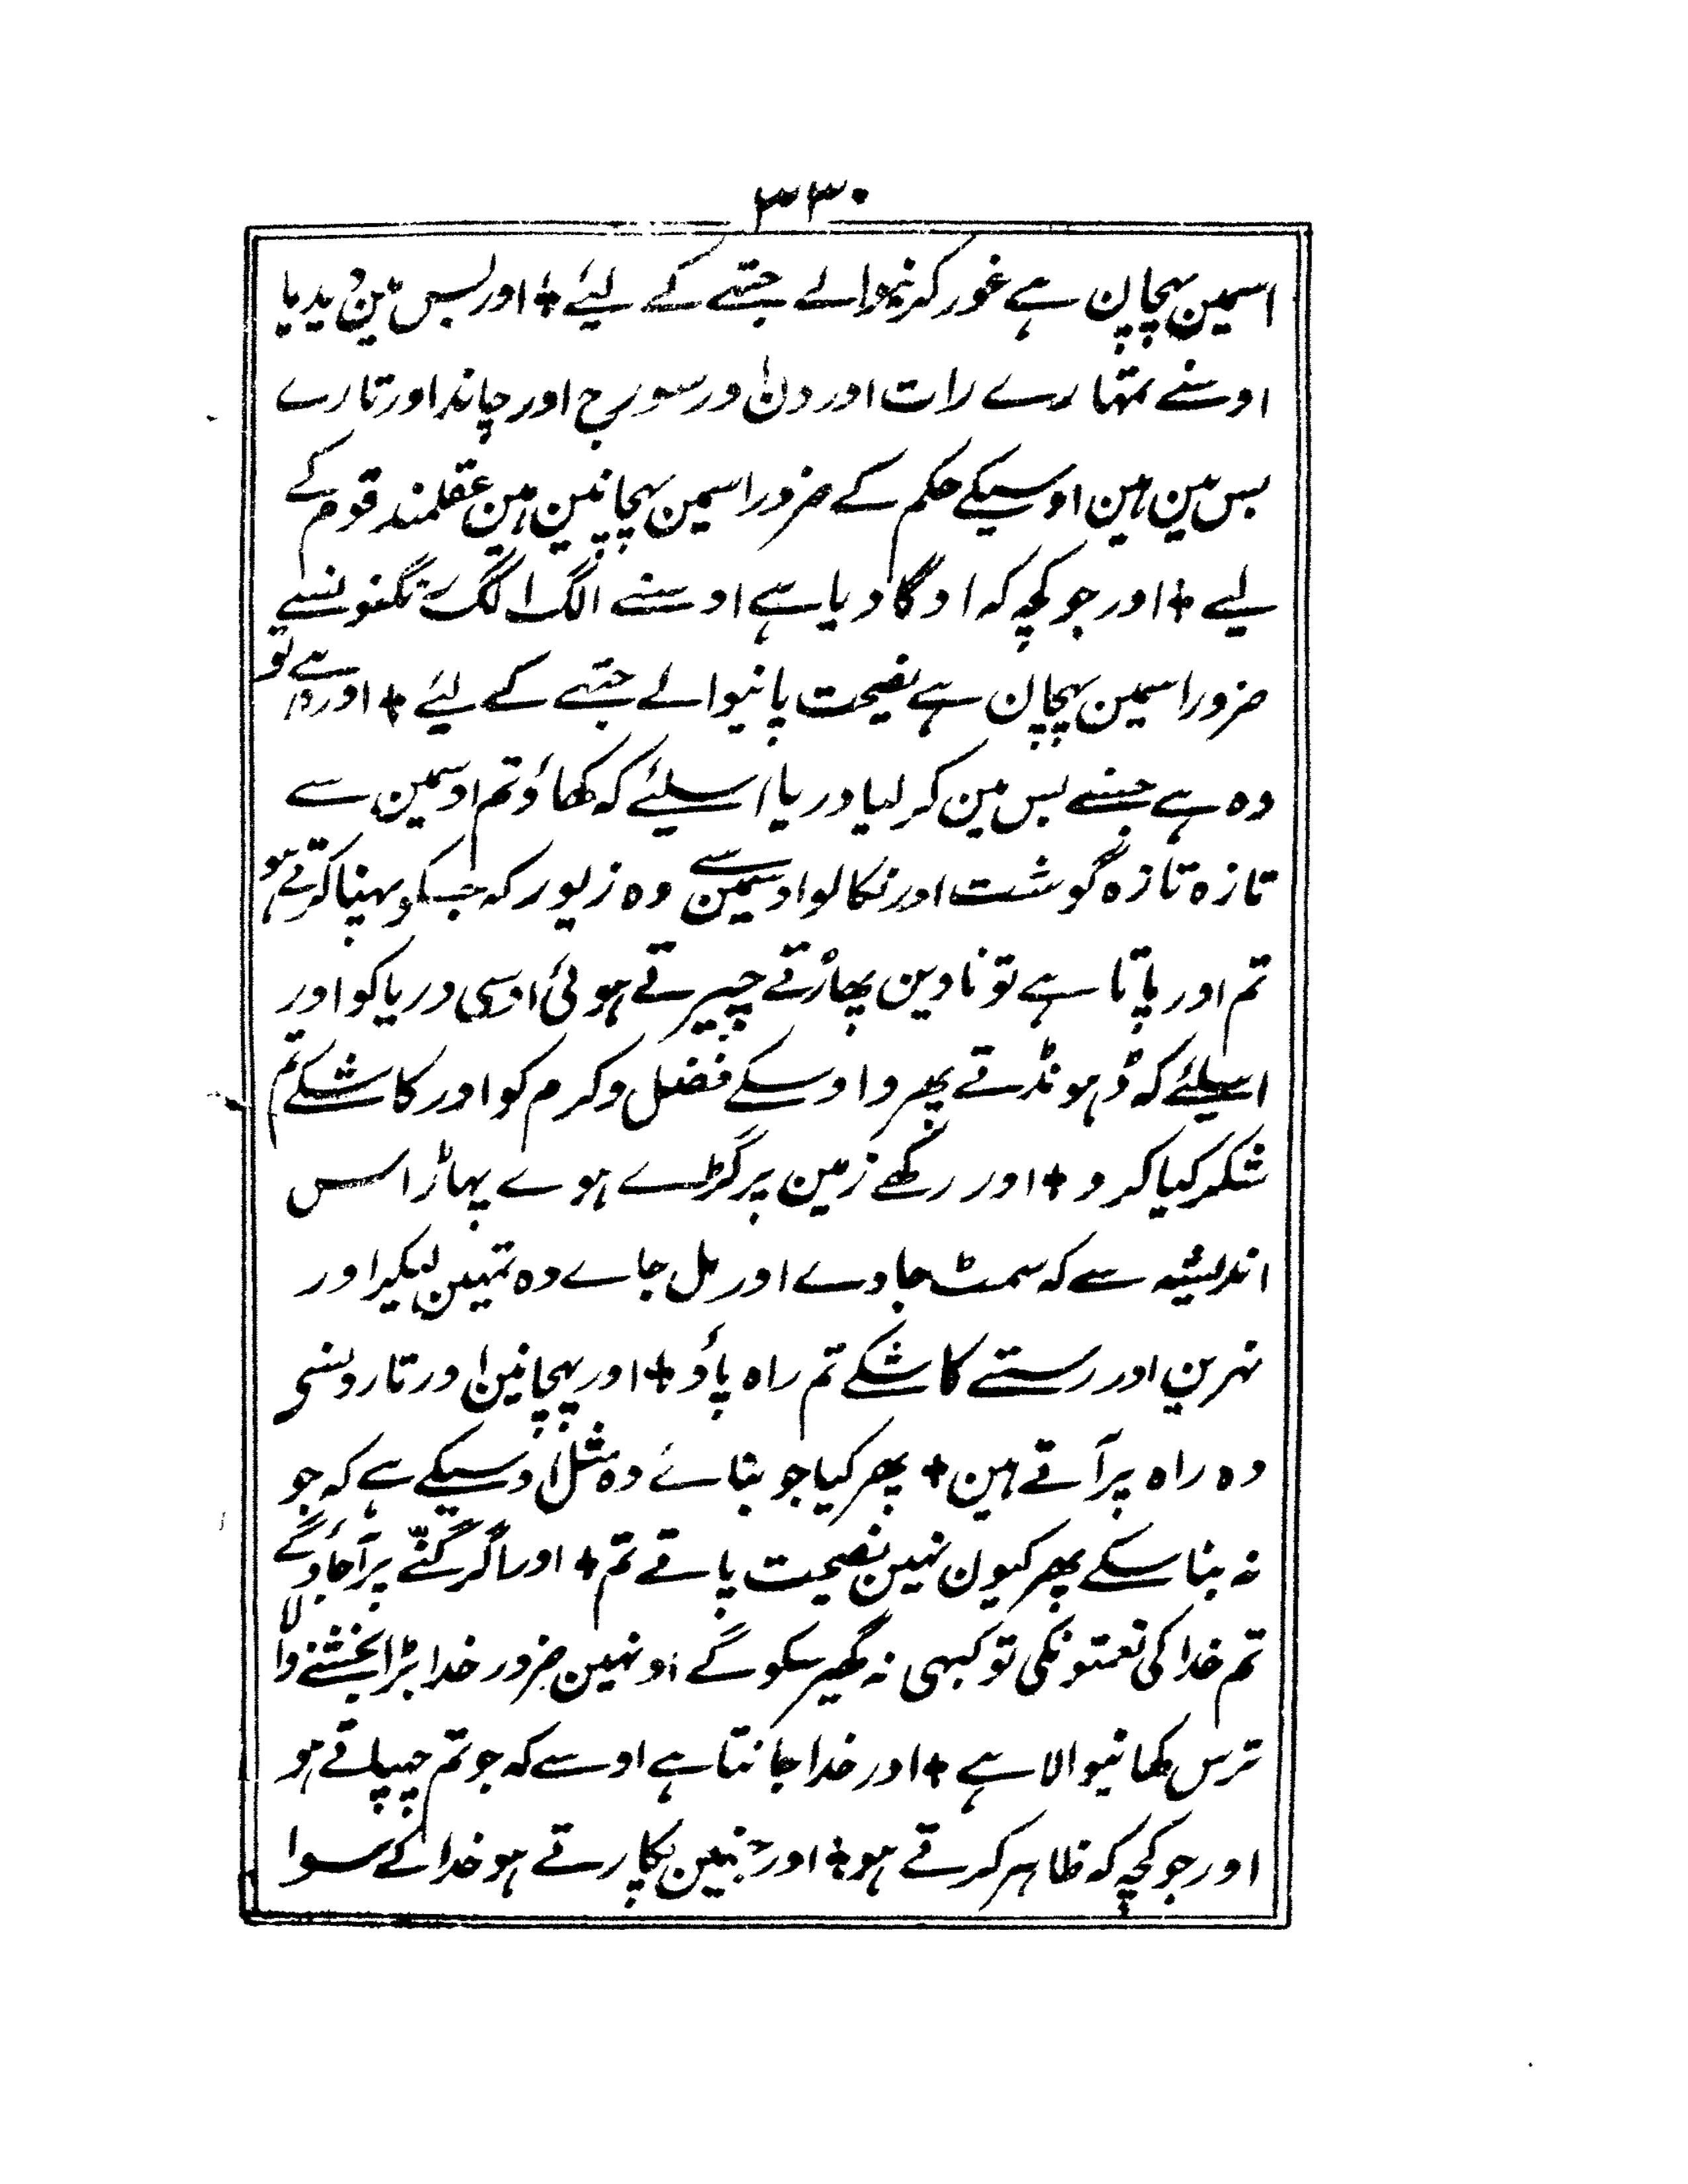 ۳۳۰
اسمین پہچاپن ہے غور کرنیوالے جتھے کے لیئے + اور بس مین دیدیا
اوسنے تمہارے رات اور دن اور سورج اور چاند اور تارے
بس مین ہین اوسیکے حکم کے ضرور اسمین پہچانین ہین عقلمند قوم کے
لیے + اور جو کچہ کہ اوگا دیا ہے اوسنے الگ الگ رنگنونسے
ضرور اسمین پہچاپن ہے نصیحت پانیوالے جتھے کے لیئے + اور وہے تو
وہ ہے جسنے بس مین کر لیا دریا اسلیئے کہ کھاؤ تم اوسمین سے
تازہ تازہ گوشت اور نکالو اوسمین سے وہ زیور کہ جسکو پہنا کرتے ہو
تم اور پاتا ہے تو نا دین پھاڑتے چیرتے ہوئی اوسی دریا کو اور
اسلیئے کہ ڈہونڈتے پھرو اوسکے فضل و کرم کو اور کاشکے تم
شکر کیا کرو + اور رکھے زمین پر گڑے ہوے پہاڑ اس
اندیشہ سے کہ سمٹ جاوے اور مل جاے وہ تمہین لیکر اور
نہرین اور رستے کاشکے تم راہ پاؤ + اور پہچانین اور تارونسی
وہ راہ پر آتے ہین + پھر کیا جو بنائے وہ مثل اوسیکے ہے کہ جو
نہ بنا سکے پھر کیون نہین نصیحت پاتے تم + اور اگر گننے پر آجاوگے
تم خدا کی نعمتونکی تو کبہی نہ گھیر سکوگے اونہین ضرور خدا بڑا بخشنے والا
ترس کھانیوالا ہے + اور خدا جانتا ہے اوسے کہ جو تم چہپاتے ہو
اور جو کچہ کہ ظاہر کرتے ہو + اور جنہین پکارتے ہو خدا کے سوا